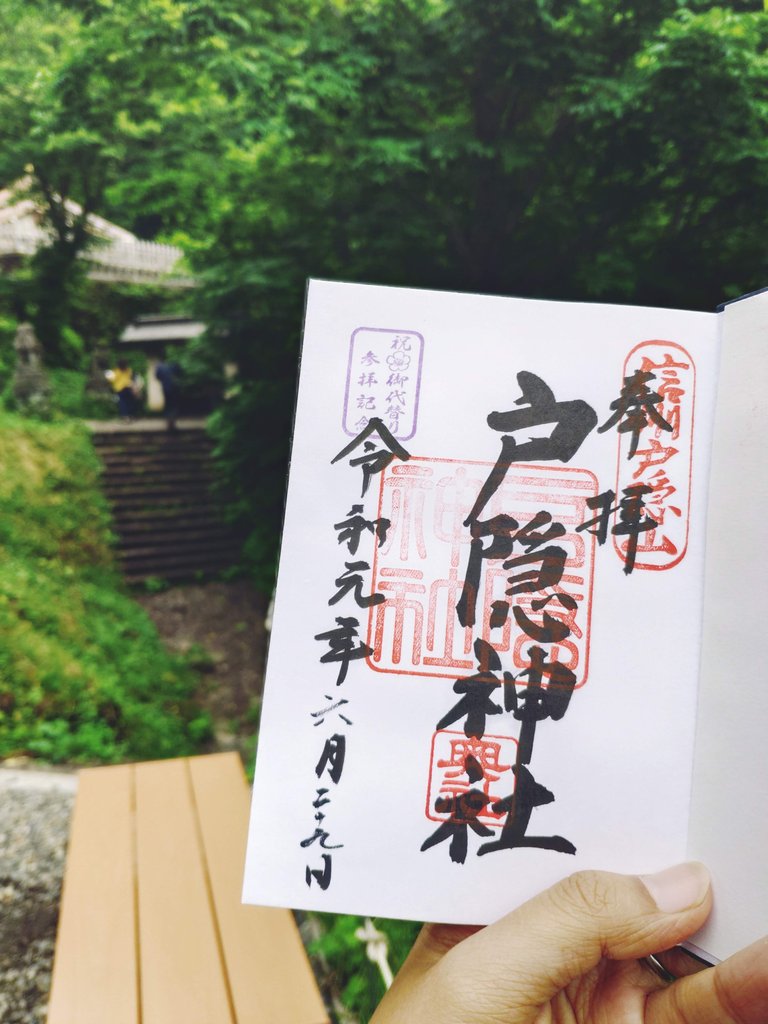 奉拝
信州戸隠山
戸隠神社
戸隠神社
奥社
令和元年六月二十九日
祝御代替り
参拝記念